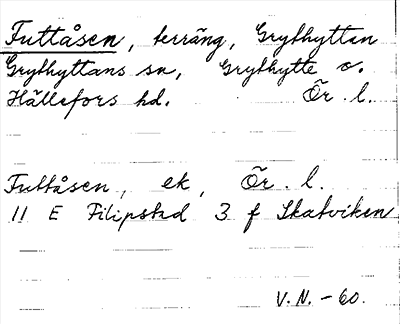 Futtåsen, terräng, Grythyttan
Grythyttans sn, Grythytte o.
Hällefors hd. Ör. l.
Futtåsen, ek, Ör. l.
11 E Filipstad 3 f Skatviken
V.N. - 60.